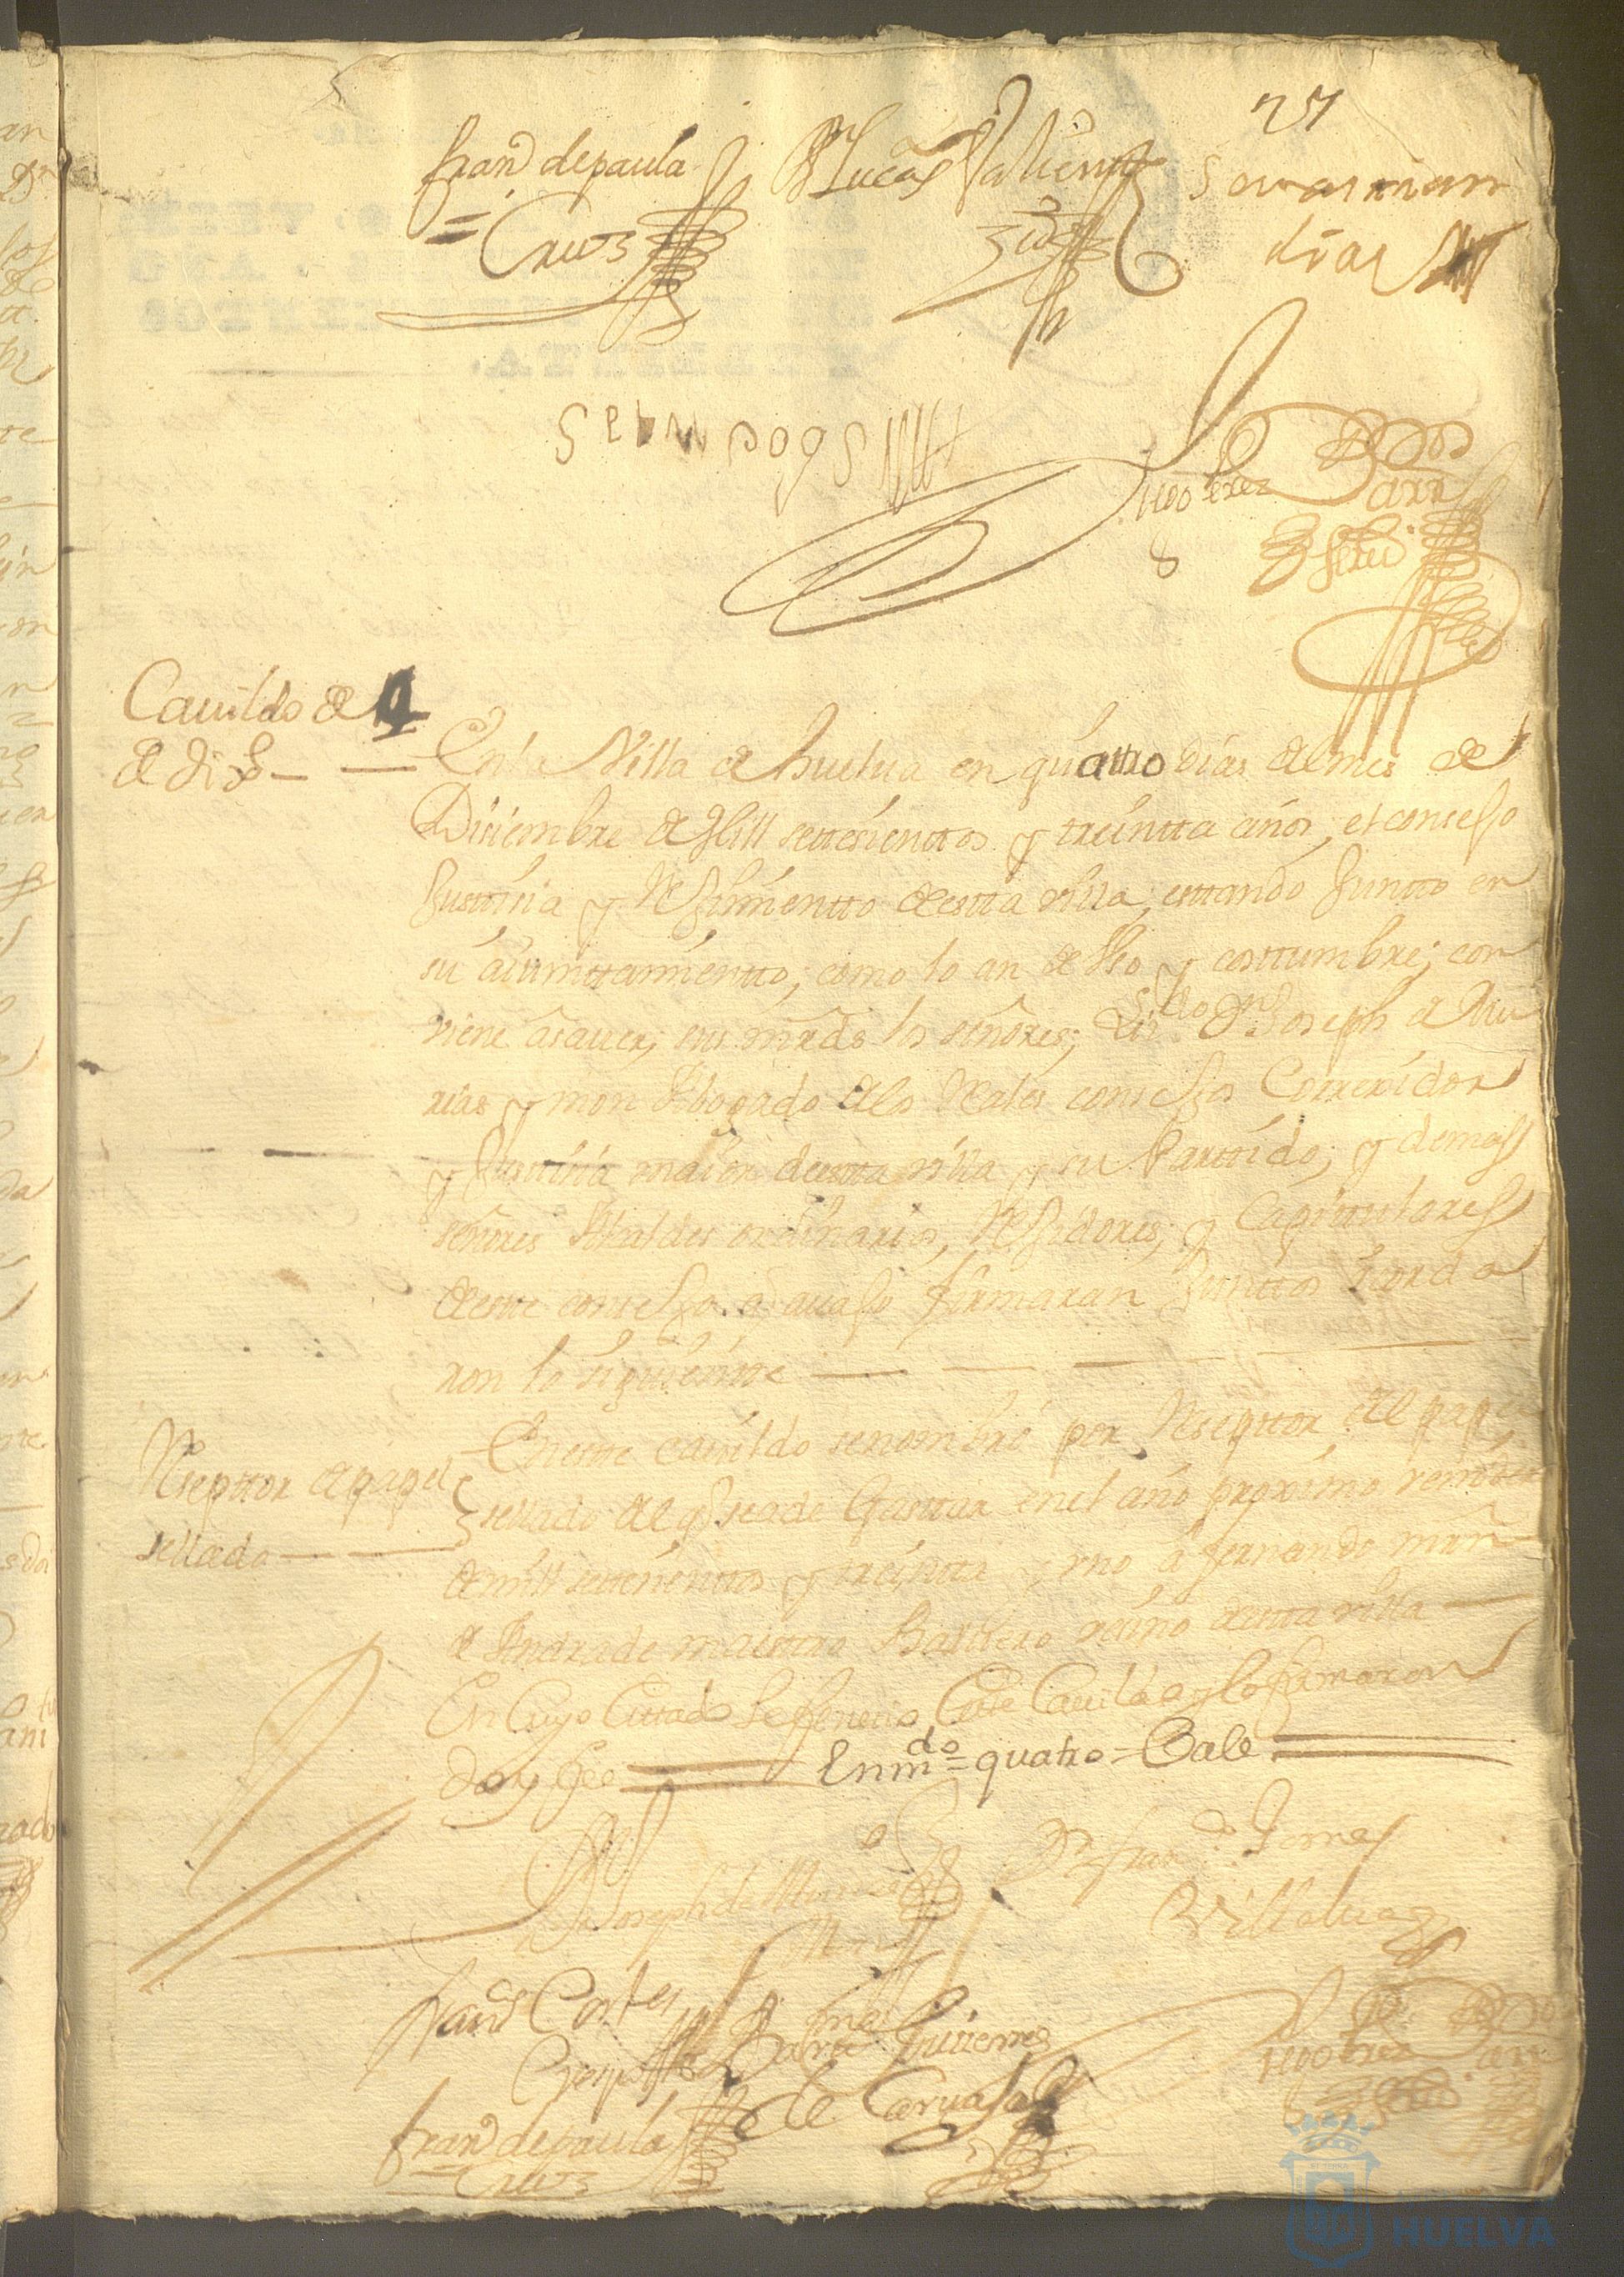 27
fran.co de paula Lucas Valiente Sevastian
= Cruz dias
Diego Perez
Cavildo de 4
de Diz.e — — En la Villa de huelva en quattro dias del mes de
Diziembre de Mill settesienttos y treintta años, el consejo
Justtisia y Rejimientto de estta villa, esttando Juntto en
su aiunttamientto, como lo an de Vso y costtumbre; con
viene â saver, sus mrds los señores, Lizdo Dn Joseph de Mu
rias y mon Abogado de los Reales consejos Correxidor
y Justtisia maior de estta villa y su Parttido, y demas
señores Alcaldes ordinarios, Rejidores, y Capittulares
de este consejo q avajo firmaran Junttos Acorda
ron lo siguientte — — — — —
Reseptor de papel
sellado — —
En este cavildo se nombró por Reseptor del papel
sellado del q se a de Gasttar en el año proximo venidero
de mill settesienttos y treintta y vno â fernando mrn
de Andrade maesttro Barbero vesino de estta villa —
En Cuyo Esttado se fenesio Este Cavildo y lo firmaron
Doy fee = Enmdo = quatro = Vale =
Joseph de Murias Dn fran.co Gomes
y Mon Villalva
fran.co Cortes
Crespo Barme Gutierres
de Carvajal
Diego Perez
fran.co de paula
= Cruz
HUELVA